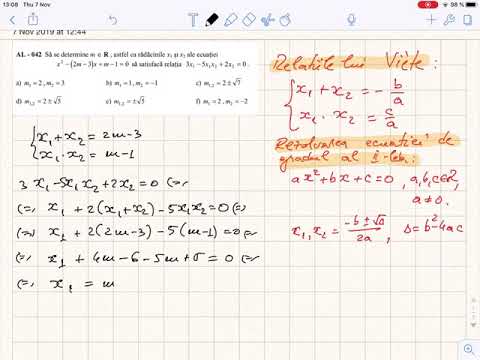 13:08 Thu 7 Nov
98 %
7 Nov 2019 at 12:44
AL - 642 Să se determine m ∈ R, astfel ca rădăcinile x₁ și x₂ ale ecuației
x² − (2m − 3)x + m − 1 = 0 să satisfacă relația 3x₁ − 5x₁x₂ + 2x₂ = 0.
a) m₁ = 2, m₂ = 3 b) m₁ = 1, m₂ = −1 c) m₁,₂ = 2 ± √7
d) m₁,₂ = 2 ± √5 e) m₁,₂ = ±√5 f) m₁ = 2, m₂ = −2
{x₁ + x₂ = 2m-3
x₁ · x₂ = m-1
3x₁ - 5x₁x₂ + 2x₂ = 0 (=)
(=) x₁ + 2(x₁+x₂) - 5x₁x₂ = 0 (=)
(=) x₁ + 2(2m-3) - 5(m-1) = 0 (=)
(=) x₁ + 4m - 6 - 5m + 5 = 0 (=)
(=) x₁ = m
Relatiile lui Viète :
{x₁ + x₂ = - b/a
x₁ · x₂ = c/a
Rezolvarea ecuatiei de
gradul al II-lea :
ax² + bx + c = 0, a,b,c∈R,
a ≠ 0.
x₁, x₂ = (-b ± √Δ)/2a, Δ = b² - 4ac